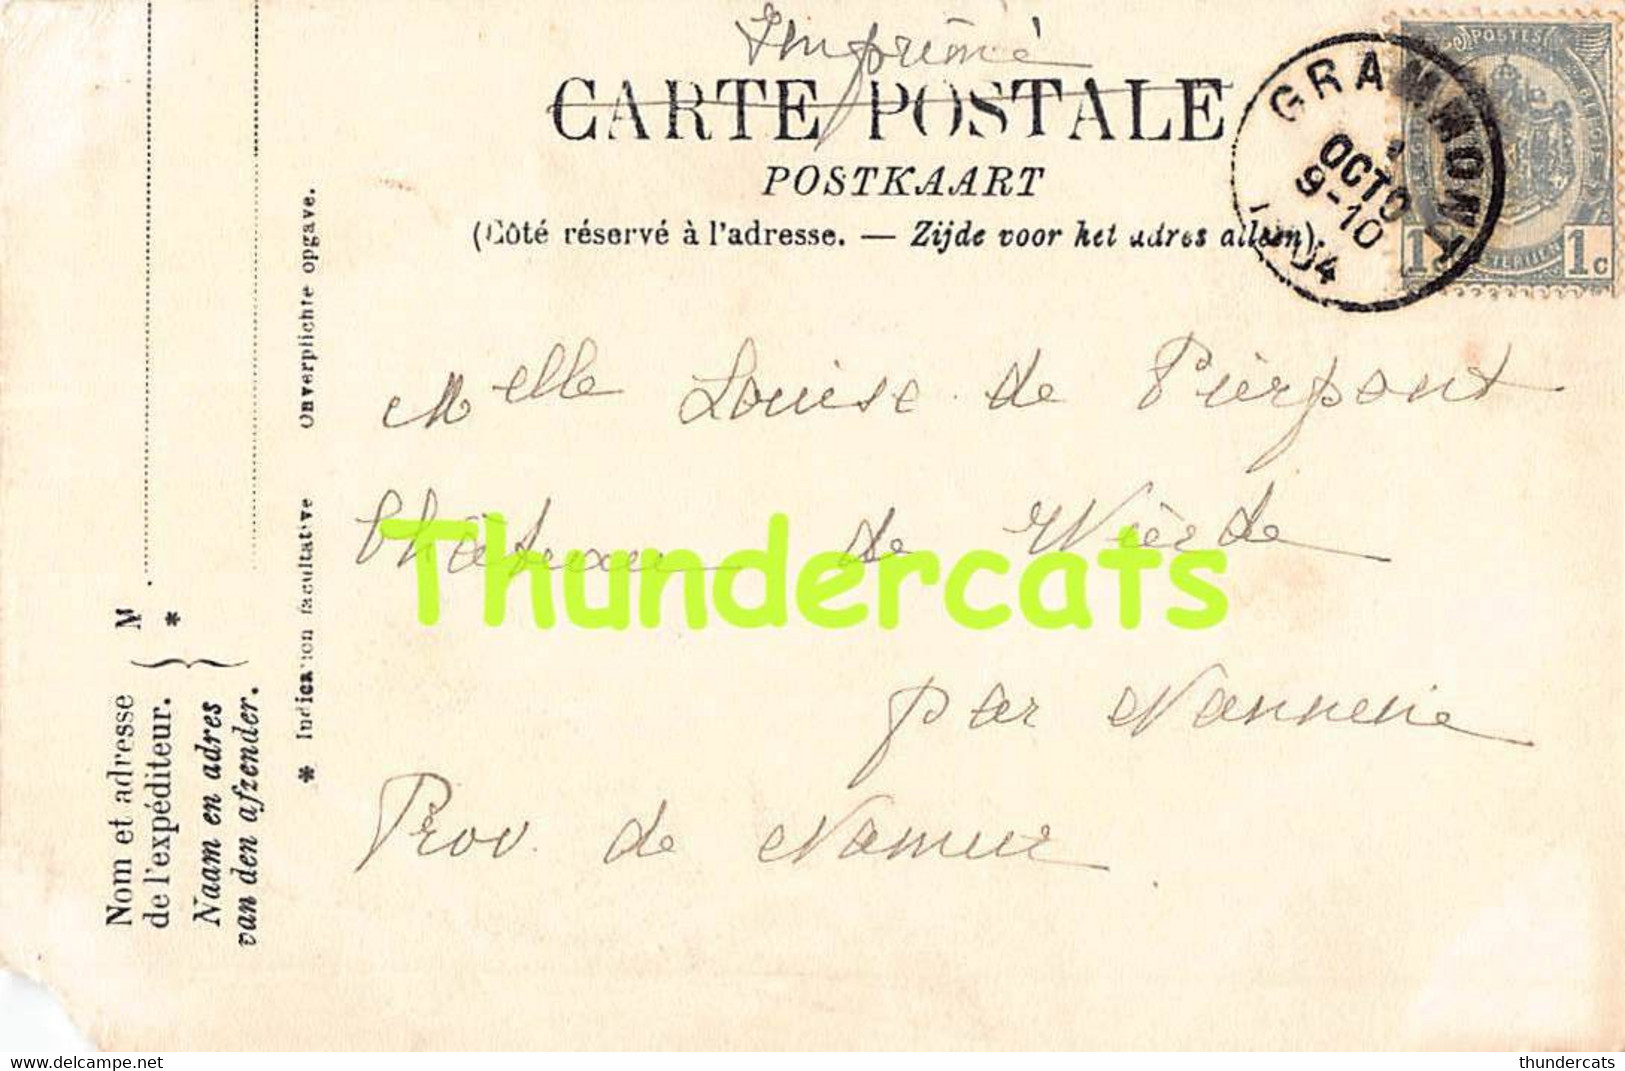 Imprimé
CARTE POSTALE
POSTKAART
(Côté réservé à l'adresse. — Zijde voor het adres alleen).
GRAMMONT
OCTO
9-10
1904
POSTES
1c 1c
Melle Louise de Pierpont
Château de Wierde
par Nannine
Prov. de Namur
Thundercats
Nom et adresse de l'expéditeur.
Naam en adres van den afzender.
M.
*
* Indication facultative Onverplichte opgave.
thundercats
thundercats